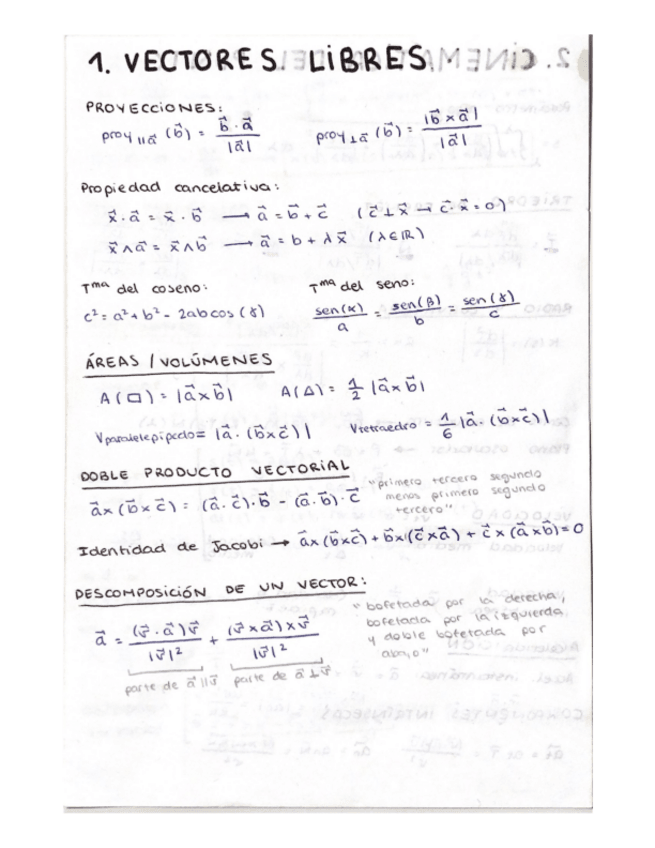 1. VECTORES LIBRES
PROYECCIONES:
proy ∥a⃗ (b⃗) = b⃗ · a⃗ / |a⃗|    proy ⊥a⃗ (b⃗) = |b⃗ × a⃗| / |a⃗|
Propiedad cancelativa:
x⃗ · a⃗ = x⃗ · b⃗ ⟶ a⃗ = b⃗ + c⃗ (c⃗ ⊥ x⃗ → c⃗ · x⃗ = 0)
x⃗ ∧ a⃗ = x⃗ ∧ b⃗ ⟶ a⃗ = b + λx⃗ (λ∈ℝ)
Tma del coseno:    Tma del seno:
c² = a² + b² - 2ab cos (γ)    sen(α) / a = sen(β) / b = sen(γ) / c
ÁREAS / VOLÚMENES
A(▱) = |a⃗ × b⃗|    A(△) = 1/2 |a⃗ × b⃗|
Vparalelepípedo = |a⃗ · (b⃗ × c⃗)|    Vtetraedro = 1/6 |a⃗ · (b⃗ × c⃗)|
DOBLE PRODUCTO VECTORIAL
a⃗ × (b⃗ × c⃗) = (a⃗ · c⃗) · b⃗ - (a⃗ · b⃗) · c⃗
"primero tercero segundo
menos primero segundo
tercero"
Identidad de Jacobi → a⃗ × (b⃗ × c⃗) + b⃗ × (c⃗ × a⃗) + c⃗ × (a⃗ × b⃗) = 0
DESCOMPOSICIÓN DE UN VECTOR:
a⃗ = (v⃗ · a⃗) v⃗ / |v⃗|² + (v⃗ × a⃗) × v⃗ / |v⃗|²
parte de a⃗ ∥ v⃗    parte de a⃗ ⊥ v⃗
"bofetada por la derecha,
bofetada por la izquierda
y doble bofetada por
abajo"